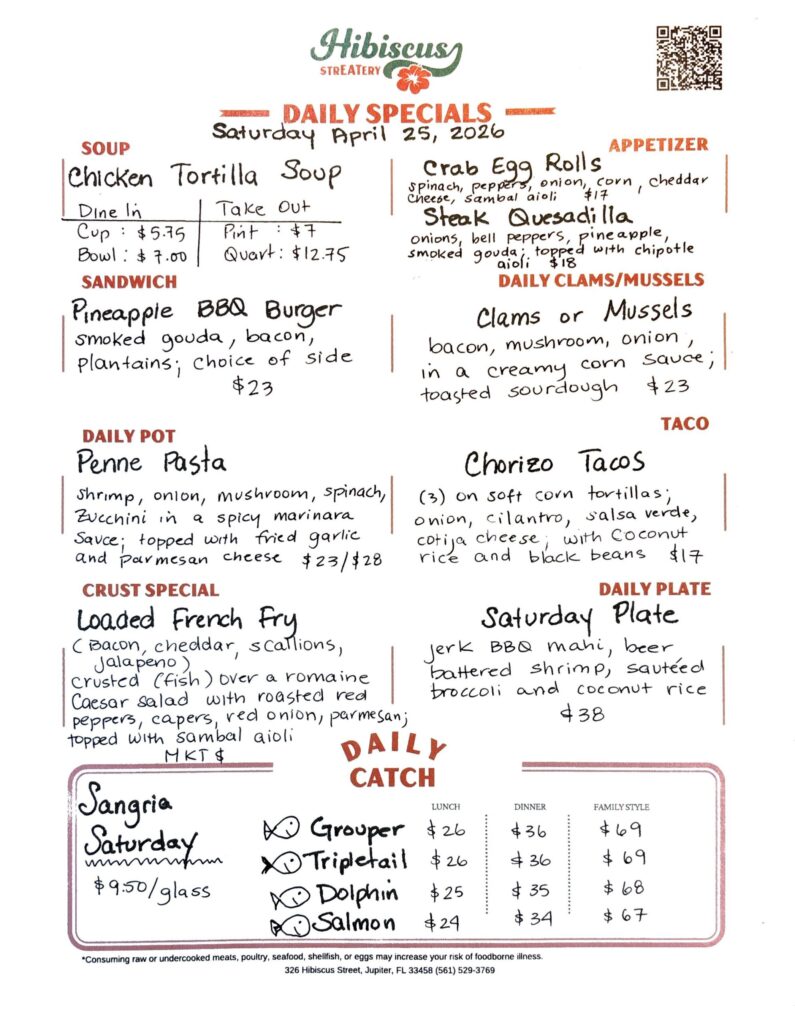 Hibiscus
STREATERY
DAILY SPECIALS
Saturday April 25, 2026
SOUP
Chicken Tortilla Soup
Dine In | Take Out
Cup : $5.75 | Pint : $7
Bowl : $7.00 | Quart : $12.75
APPETIZER
Crab Egg Rolls
spinach, peppers, onion, corn, cheddar
cheese, sambal aioli $17
Steak Quesadilla
onions, bell peppers, pineapple,
smoked gouda; topped with chipotle
aioli $18
SANDWICH
Pineapple BBQ Burger
smoked gouda, bacon,
plantains; choice of side
$23
DAILY CLAMS/MUSSELS
Clams or Mussels
bacon, mushroom, onion,
in a creamy corn sauce;
toasted sourdough $23
DAILY POT
Penne Pasta
shrimp, onion, mushroom, spinach,
zucchini in a spicy marinara
sauce; topped with fried garlic
and parmesan cheese $23/$28
TACO
Chorizo Tacos
(3) on soft corn tortillas;
onion, cilantro, salsa verde,
cotija cheese; with coconut
rice and black beans $17
CRUST SPECIAL
Loaded French Fry
(Bacon, cheddar, scallions,
jalapeno)
crusted (fish) over a romaine
Caesar salad with roasted red
peppers, capers, red onion, parmesan;
topped with sambal aioli
MKT $
DAILY PLATE
Saturday Plate
jerk BBQ mahi, beer
battered shrimp, sautéed
broccoli and coconut rice
$38
DAILY
CATCH
Sangria
Saturday
$9.50/glass
LUNCH DINNER FAMILY STYLE
Grouper $26 $36 $69
Tripletail $26 $36 $69
Dolphin $25 $35 $68
Salmon $24 $34 $67
*Consuming raw or undercooked meats, poultry, seafood, shellfish, or eggs may increase your risk of foodborne illness.
326 Hibiscus Street, Jupiter, FL 33458 (561) 529-3769